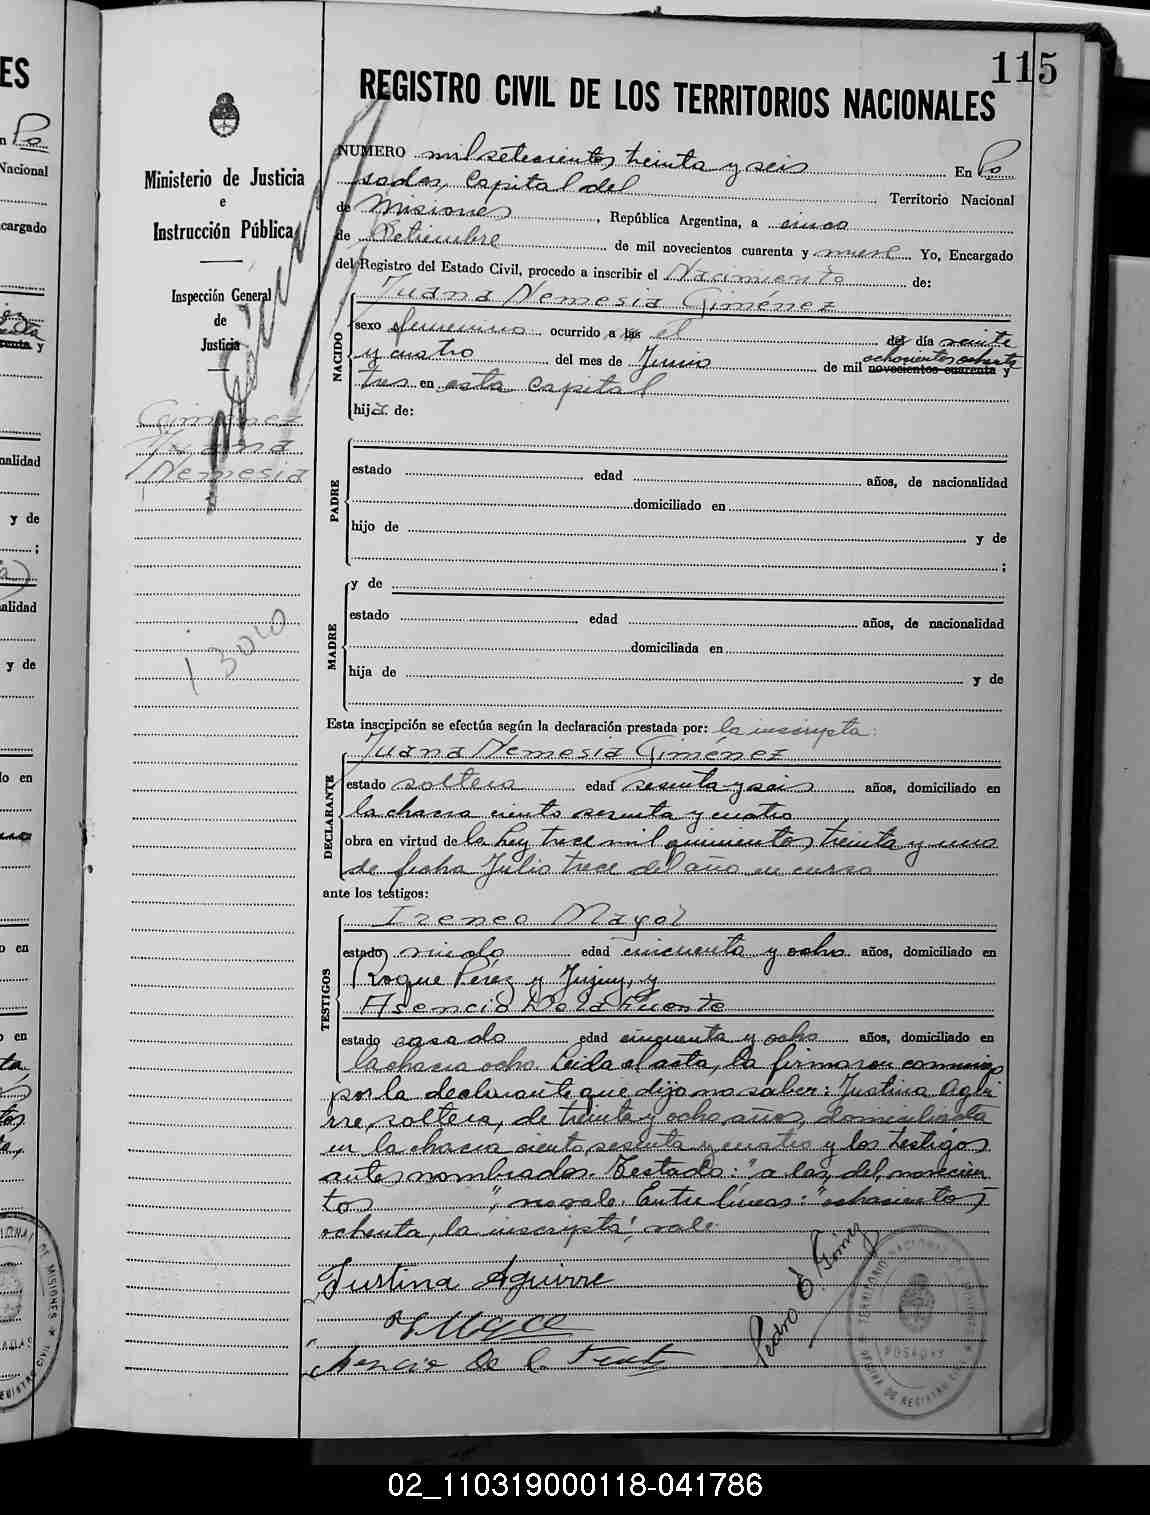 115
REGISTRO CIVIL DE LOS TERRITORIOS NACIONALES
Ministerio de Justicia
e
Instrucción Pública
Inspección General
de
Justicia
Giménez
Juana
Nemesia
13010
NUMERO mil setecientos treinta y seis En Po
sadas, Capital del Territorio Nacional
de Misiones, República Argentina, a cinco
de Setiembre de mil novecientos cuarenta y nueve Yo, Encargado
del Registro del Estado Civil, procedo a inscribir el Nacimiento de:
Juana Nemesia Giménez
NACIDO
sexo femenino ocurrido a las el del día veinte
y cuatro del mes de Junio de mil novecientos cuarenta y
ochocientos ochenta
tres en esta Capital
hija de:
PADRE
estado edad años, de nacionalidad
domiciliado en
hijo de y de
;
MADRE
y de
estado edad años, de nacionalidad
domiciliada en
hija de y de
Esta inscripción se efectúa según la declaración prestada por: la inscripta:
Juana Nemesia Giménez
DECLARANTE
estado soltera edad sesenta y seis años, domiciliado en
la chacra ciento sesenta y cuatro
obra en virtud de la Ley trece mil quinientos treinta y uno
de fecha Julio trece del año en curso
ante los testigos:
TESTIGOS
Ireneo Mayol
estado viudo edad cincuenta y ocho años, domiciliado en
Roque Pérez y Jujuy, y
Asencio De la Fuente
estado casado edad cincuenta y ocho años, domiciliado en
la chacra ocho. Leida el acta, la firmaron conmigo
por la declarante que dijo no saber: Justina Agui
rre, soltera, de treinta y ocho años, domiciliada
en la chacra ciento sesenta y cuatro y los testigos
antes nombrados. Testado: "a las, del, novecien
tos ", no vale. Entre líneas: "ochocientos
ochenta, la inscripta", vale.
Justina Aguirre
Asencio De la Fuente
Pedro Gómez
POSADAS
02_110319000118-041786